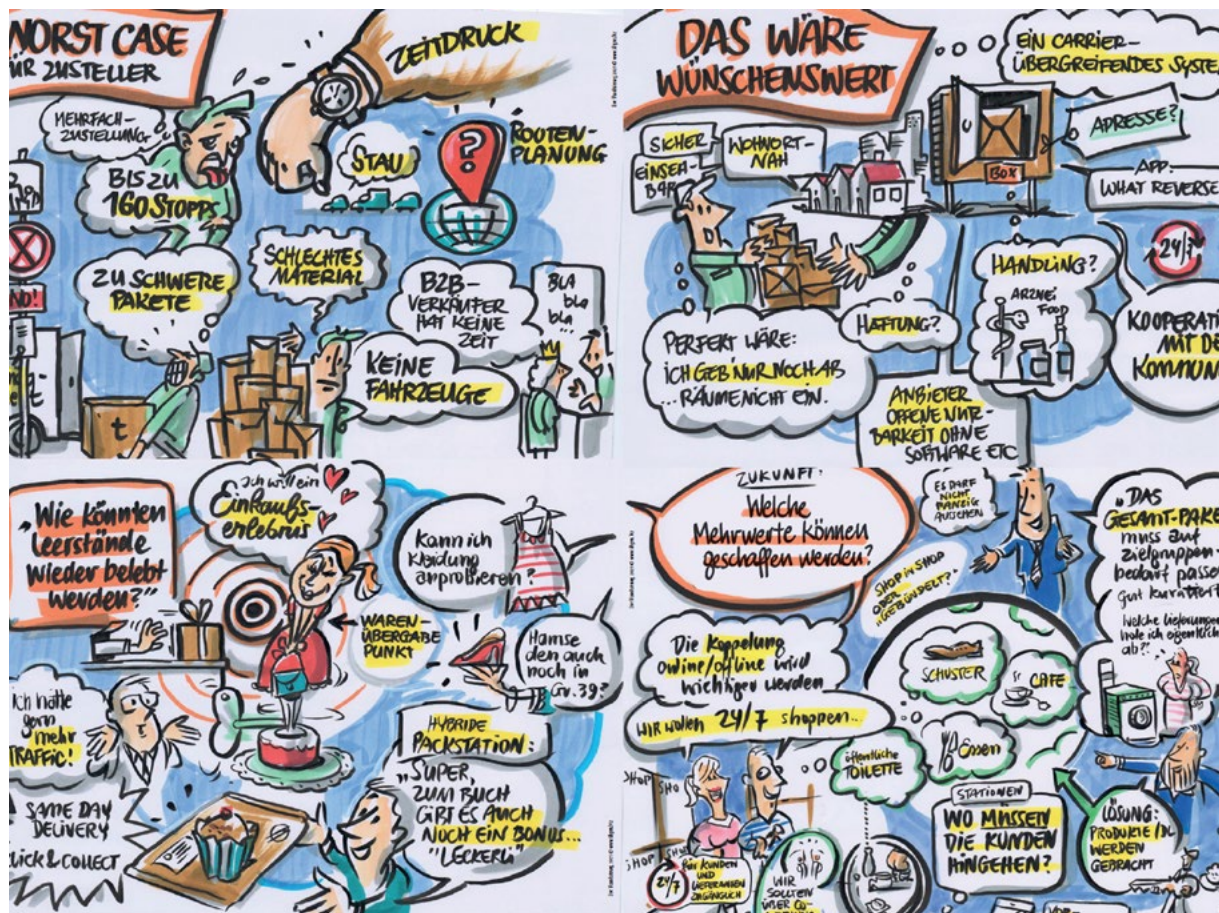 WORST CASE
FÜR ZUSTELLER
ZEITDRUCK
MEHRFACH-
ZUSTELLUNG
BIS ZU
160 STOPPS
STAU
ROUTEN-
PLANUNG
?
ZU SCHWERE
PAKETE
SCHLECHTES
MATERIAL
B2B-
VERKÄUFER
HAT KEINE
ZEIT
BLA
bla
bla
...
KEINE
FAHRZEUGE
NO!
t
DAS WÄRE
WÜNSCHENSWERT
EIN CARRIER-
ÜBERGREIFENDES SYSTE
SICHER
EINSEH-
BAR
WOHNORT-
NAH
BOX
ADRESSE?
APP:
WHAT REVERSE
24/7
HANDLING?
ARZNEI
FOOD
HAFTUNG?
KOOPERATI
MIT DE
KOMMUN
PERFEKT WÄRE:
ICH GEB NUR NOCH AB
... RÄUME NICHT EIN.
ANBIETER
OFFENE NUTZ-
BARKEIT OHNE
SOFTWARE ETC
„Wie könnten
Leerstände
wieder belebt
werden?"
Ich will ein
Einkaufs-
erlebnis
Kann ich
Kleidung
anprobieren?
WAREN-
ÜBERGABE
PUNKT
Hamse
den auch
noch in
Gr. 39?
Ich hätte
gern
mehr
TRAFFIC!
SAME DAY
DELIVERY
CLICK & COLLECT
HYBRIDE
PACKSTATION:
„SUPER,
ZUM BUCH
GIBT ES AUCH
NOCH EIN BONUS...
"LECKERLI"
ZUKUNFT:
Welche
Mehrwerte können
geschaffen werden?
ES DARF
NICHT
RANZIG
AUSSEHEN
„DAS
GESAMT-PAKE
muss auf
zielgruppen-
bedarf passe
gut kuratiert
Welche Lieferungen
hole ich eigentlich
ab?"
SHOP in SHOP
ODER
"GEBÜNDELT?"
Die Koppelung
online/offline wird
wichtiger werden
WIR wollen 24/7 shoppen...
SCHUSTER
CAFE
Essen
öffentliche
TOILETTE
STATIONEN
WO MÜSSEN
DIE KUNDEN
HINGEHEN?
LÖSUNG:
PRODUKTE/DL
WERDEN
GEBRACHT
SHOP
24/7
FÜR KUNDEN
UND
LIEFERANTEN
ZUGÄNGLICH
WIR
SOLLTEN
ÜBER CO-